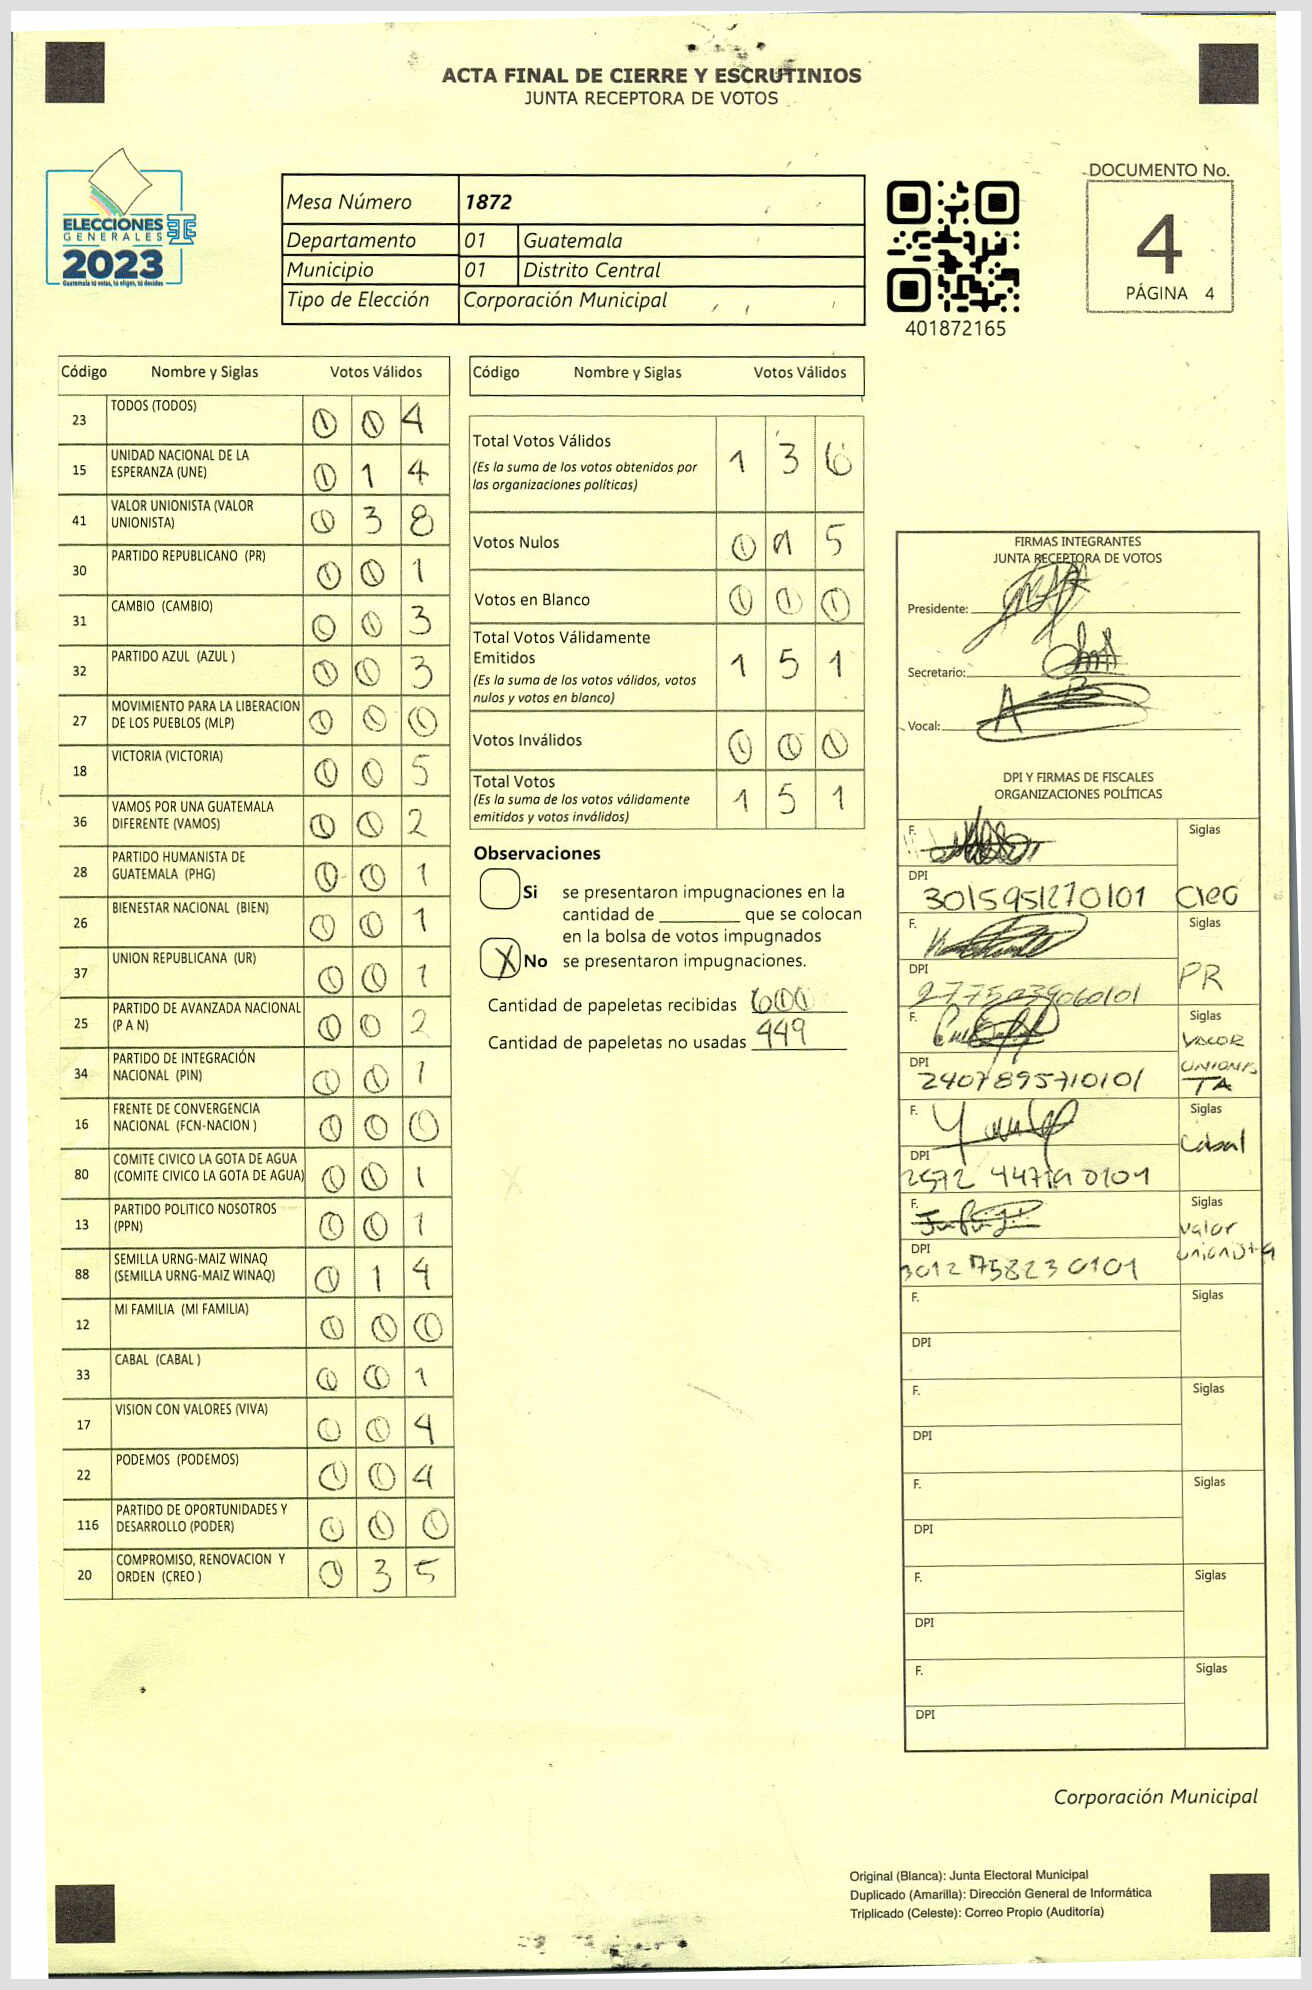 ACTA FINAL DE CIERRE Y ESCRUTINIOS
JUNTA RECEPTORA DE VOTOS
ELECCIONES
GENERALES
2023
Guatemala tú votas, tú eliges, tú decides
Mesa Número 1872
Departamento 01 Guatemala
Municipio 01 Distrito Central
Tipo de Elección Corporación Municipal
401872165
DOCUMENTO No.
4
PÁGINA 4
Código Nombre y Siglas Votos Válidos
23 TODOS (TODOS) 0 0 4
15 UNIDAD NACIONAL DE LA
ESPERANZA (UNE) 0 1 4
41 VALOR UNIONISTA (VALOR
UNIONISTA) 0 3 8
30 PARTIDO REPUBLICANO (PR) 0 0 1
31 CAMBIO (CAMBIO) 0 0 3
32 PARTIDO AZUL (AZUL ) 0 0 3
27 MOVIMIENTO PARA LA LIBERACION
DE LOS PUEBLOS (MLP) 0 0 0
18 VICTORIA (VICTORIA) 0 0 5
36 VAMOS POR UNA GUATEMALA
DIFERENTE (VAMOS) 0 0 2
28 PARTIDO HUMANISTA DE
GUATEMALA (PHG) 0 0 1
26 BIENESTAR NACIONAL (BIEN) 0 0 1
37 UNION REPUBLICANA (UR) 0 0 1
25 PARTIDO DE AVANZADA NACIONAL
(P A N) 0 0 2
34 PARTIDO DE INTEGRACIÓN
NACIONAL (PIN) 0 0 1
16 FRENTE DE CONVERGENCIA
NACIONAL (FCN-NACION ) 0 0 0
80 COMITE CIVICO LA GOTA DE AGUA
(COMITE CIVICO LA GOTA DE AGUA) 0 0 1
13 PARTIDO POLITICO NOSOTROS
(PPN) 0 0 1
88 SEMILLA URNG-MAIZ WINAQ
(SEMILLA URNG-MAIZ WINAQ) 0 1 4
12 MI FAMILIA (MI FAMILIA) 0 0 0
33 CABAL (CABAL ) 0 0 1
17 VISION CON VALORES (VIVA) 0 0 4
22 PODEMOS (PODEMOS) 0 0 4
116 PARTIDO DE OPORTUNIDADES Y
DESARROLLO (PODER) 0 0 0
20 COMPROMISO, RENOVACION Y
ORDEN (CREO ) 0 3 5
Código Nombre y Siglas Votos Válidos
Total Votos Válidos 1 3 6
(Es la suma de los votos obtenidos por
las organizaciones políticas)
Votos Nulos 0 1 5
Votos en Blanco 0 0 0
Total Votos Válidamente
Emitidos 1 5 1
(Es la suma de los votos válidos, votos
nulos y votos en blanco)
Votos Inválidos 0 0 0
Total Votos 1 5 1
(Es la suma de los votos válidamente
emitidos y votos inválidos)
Observaciones
Si se presentaron impugnaciones en la
cantidad de ________ que se colocan
en la bolsa de votos impugnados
X No se presentaron impugnaciones.
Cantidad de papeletas recibidas 600
Cantidad de papeletas no usadas 449
FIRMAS INTEGRANTES
JUNTA RECEPTORA DE VOTOS
Presidente:
Secretario:
Vocal:
DPI Y FIRMAS DE FISCALES
ORGANIZACIONES POLÍTICAS
F. Siglas
DPI
3015951270101 Creo
F. Siglas
DPI
2775039060101 PR
F. Siglas
VALOR
UNIONIS
TA
DPI
2407895710101
F. Siglas
Cabal
DPI
F. Siglas
Valor
unionista
DPI
3012758230101
F. Siglas
DPI
F. Siglas
DPI
F. Siglas
DPI
F. Siglas
DPI
F. Siglas
DPI
Corporación Municipal
Original (Blanca): Junta Electoral Municipal
Duplicado (Amarilla): Dirección General de Informática
Triplicado (Celeste): Correo Propio (Auditoría)